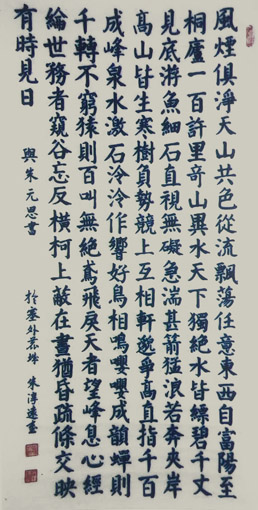 風煙俱淨天山共色從流飄蕩任意東西自富陽至
桐廬一百許里奇山異水天下獨絕水皆縹碧千丈
見底游魚細石直視無礙急湍甚箭猛浪若奔夾岸
高山皆生寒樹負勢競上互相軒邈爭高直指千百
成峰泉水激石泠泠作響好鳥相鳴嚶嚶成韻蟬則
千轉不窮猿則百叫無絕鳶飛戾天者望峰息心經
綸世務者窺谷忘反橫柯上蔽在晝猶昏疏條交映
有時見日
與朱元思書
於塞外 朱淳